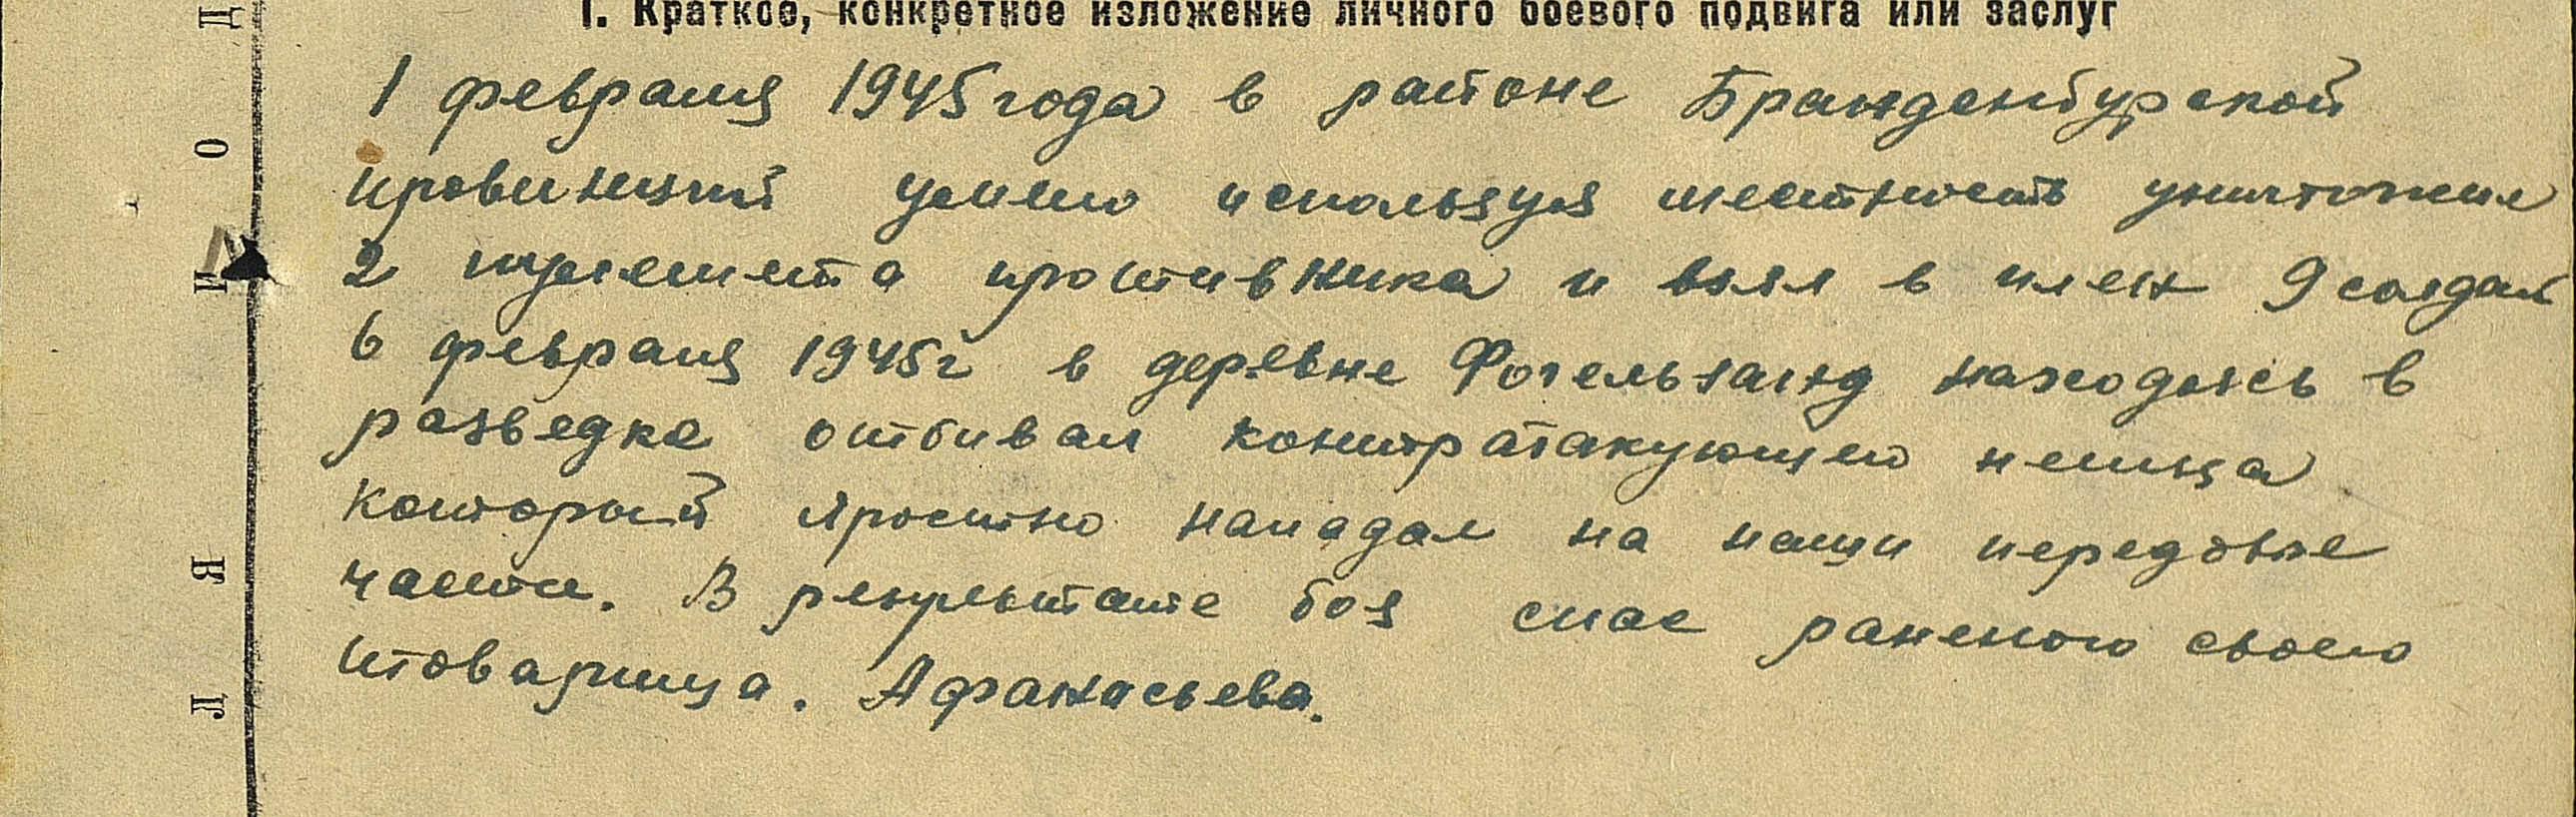 I. Краткое, конкретное изложение личного боевого подвига или заслуг
1 февраля 1945 года в районе Бранденбурской
провинций умело используя местность уничтожил
2 пулемета противника и взял в плен 9 солдат
6 февраля 1945г в деревне Фогельзанд находясь в
разведке отбивал контратакующего немца
который яростно нападал на наши передовые
части. В результате боя спас раненого своего
товарища. Афанасьева.